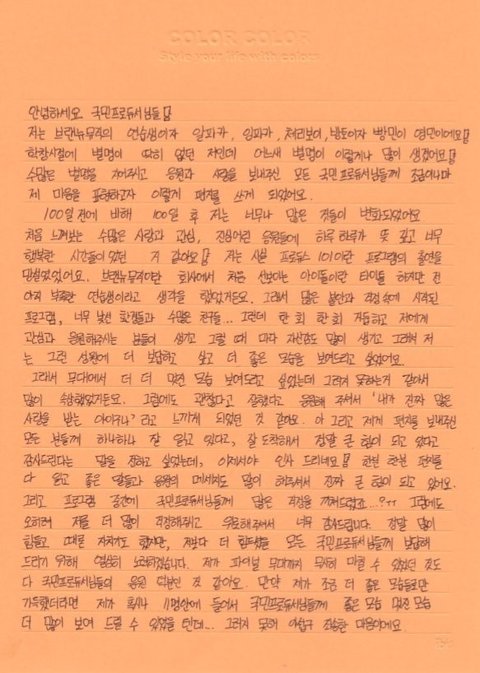 COLOR COLOR
Style your life with color
안녕하세요 국민프로듀서님들
저는 브랜뉴뮤직의 연습생이자 임파카, 체리보이, 방토이자 빵민이 영민이에요
학창시절에 별명이 딱히 없던 저인데 어느새 별명이 이렇게나 많이 생겼어요
수많은 별명을 지어주고 응원과 사랑을 보내주신 모든 국민프로듀서님들께 조금이나마
제 마음을 표현하고자 이렇게 편지를 쓰게 되었어요.
100일 전에 비해 100일 후 저는 너무나 많은 것들이 변화되었어요
처음 느껴보는 수많은 사랑과 관심, 진심어린 응원들에 하루하루가 뜻 깊고 너무
행복한 시간들이었던 거 같아요 저는 사실 프로듀스 101이란 프로그램의 출연을
망설였었어요. 브랜뉴뮤직이란 회사에서 처음 선보이는 아이돌이란 타이틀 하지만 전
아직 부족한 연습생이라고 생각을 했었거든요. 그래서 많은 불안과 걱정속에 시작된
프로그램, 너무 낯선 환경들과 수많은 친구들... 그런데 한 회 한 회 거듭하고 저에게
관심과 응원해주시는 분들이 생기고 그럴 때 마다 자신감도 많이 생기고 그래서 저
는 그런 성원에 더 보답하고 싶고 더 좋은 모습을 보여드리고 싶었어요.
그래서 무대에서 더 더 멋진 모습 보여드리고 싶었는데 그러지 못하는거 같아서
많이 속상했었거든요. 그럼에도 괜찮다고 잘했다고 응원해 주셔서 '내가 진짜 많은
사랑을 받는 아이구나' 라고 느끼게 되었던 것 같아요. 아 그리고 제게 편지를 보내주신
모든 분들께 하나하나 잘 읽고 있다고, 잘 도착해서 정말 큰 힘이 되고 있다고
감사드린다는 말을 전하고 싶었는데, 이제서야 인사 드리네요 한분 한분 편지를
다 읽고 좋은 말들과 응원의 메세지도 많이 해주셔서 진짜 큰 힘이 되고 있어요.
그리고 프로그램 중간에 국민프로듀서님들께 많은 걱정을 끼쳐드렸죠...?ㅜㅜ 그럼에도
오히려 저를 더 많이 걱정해주고 위로해주셔서 너무 감사드립니다. 정말 많이
힘들고 때론 지치기도 했지만, 저보다 더 힘드셨을 모든 국민프로듀서님들께 보답해
드리기 위해 열심히 노력하였습니다. 제가 파이널 무대까지 무사히 마칠 수 있었던 것도
다 국민프로듀서님들의 응원 덕분인 것 같아요. 만약 제가 조금 더 좋은 모습들로만
가득했더라면 제가 혹시나 11명안에 들어서 국민프로듀서님들께 좋은 모습 멋진 모습
더 많이 보여 드릴 수 있었을 텐데... 그러지 못해 아쉽고 죄송한 마음이에요